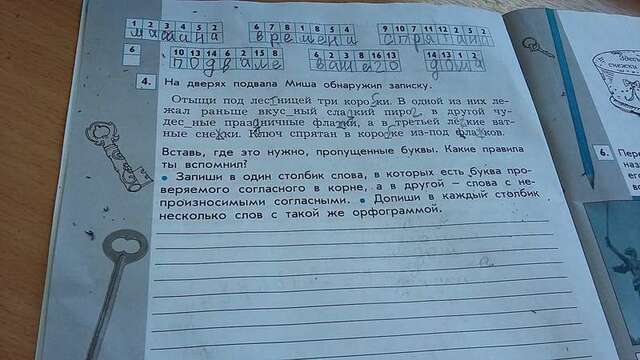 1 2 3 4 5 2 6 7 8 1 8 4 5 9 10 7 11 12 4 2 5
машина времени спрятан
6 10 13 14 6 2 15 8 6 2 3 8 16 13 14 13 1 2
подвале вашего дома
4. На дверях подвала Миша обнаружил записку.
Отыщи под лестницей три коробки. В одной из них ле-
жал раньше вкус ный сладкий пирог, в другой чу-
дес ные праздничные флажки, а в третьей лёгкие ват-
ные снежки. Ключ спрятан в коробке из-под флажков.
Вставь, где это нужно, пропущенные буквы. Какие правила
ты вспомнил?
• Запиши в один столбик слова, в которых есть буква про-
веряемого согласного в корне, а в другой – слова с не-
произносимыми согласными. • Допиши в каждый столбик
несколько слов с такой же орфограммой.
Здесь
снежки
6. Пере
наз
его